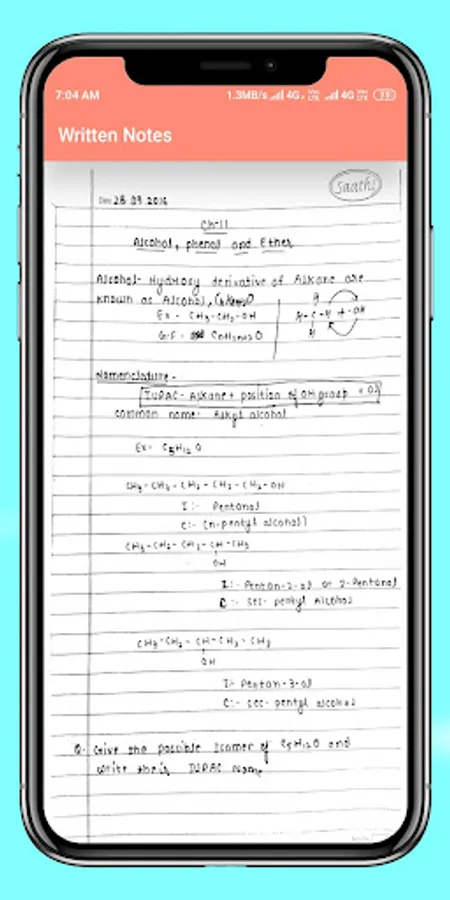 7:04 AM 1.3MB/s 4G 4G
Written Notes
Saathi
Date 28 09 2016
Ch-11
Alcohol, phenol and Ether
Alcohol- Hydroxy derivative of Alkane are
known as Alcohol,
Ex - CH3-CH2-OH
G.F -
H
H-C-H + -OH
H
Nomenclature -
IUPAC- Alkane + position of OH group + ol
common name- Alkyl alcohol
Ex- C5H12O
CH3-CH2-CH2-CH2-CH2-OH
I:- Pentanol
C:- (n-pentyl alcohol)
CH3-CH2-CH2-CH-CH3
OH
I:- Pentan-2-ol or 2-Pentanol
C:- sec- pentyl Alcohol
CH3-CH2-CH-CH2-CH3
OH
I:- Pentan-3-ol
C:- sec- pentyl alcohol
Q. Give the possible Isomer of C5H12O and
write their IUPAC Name